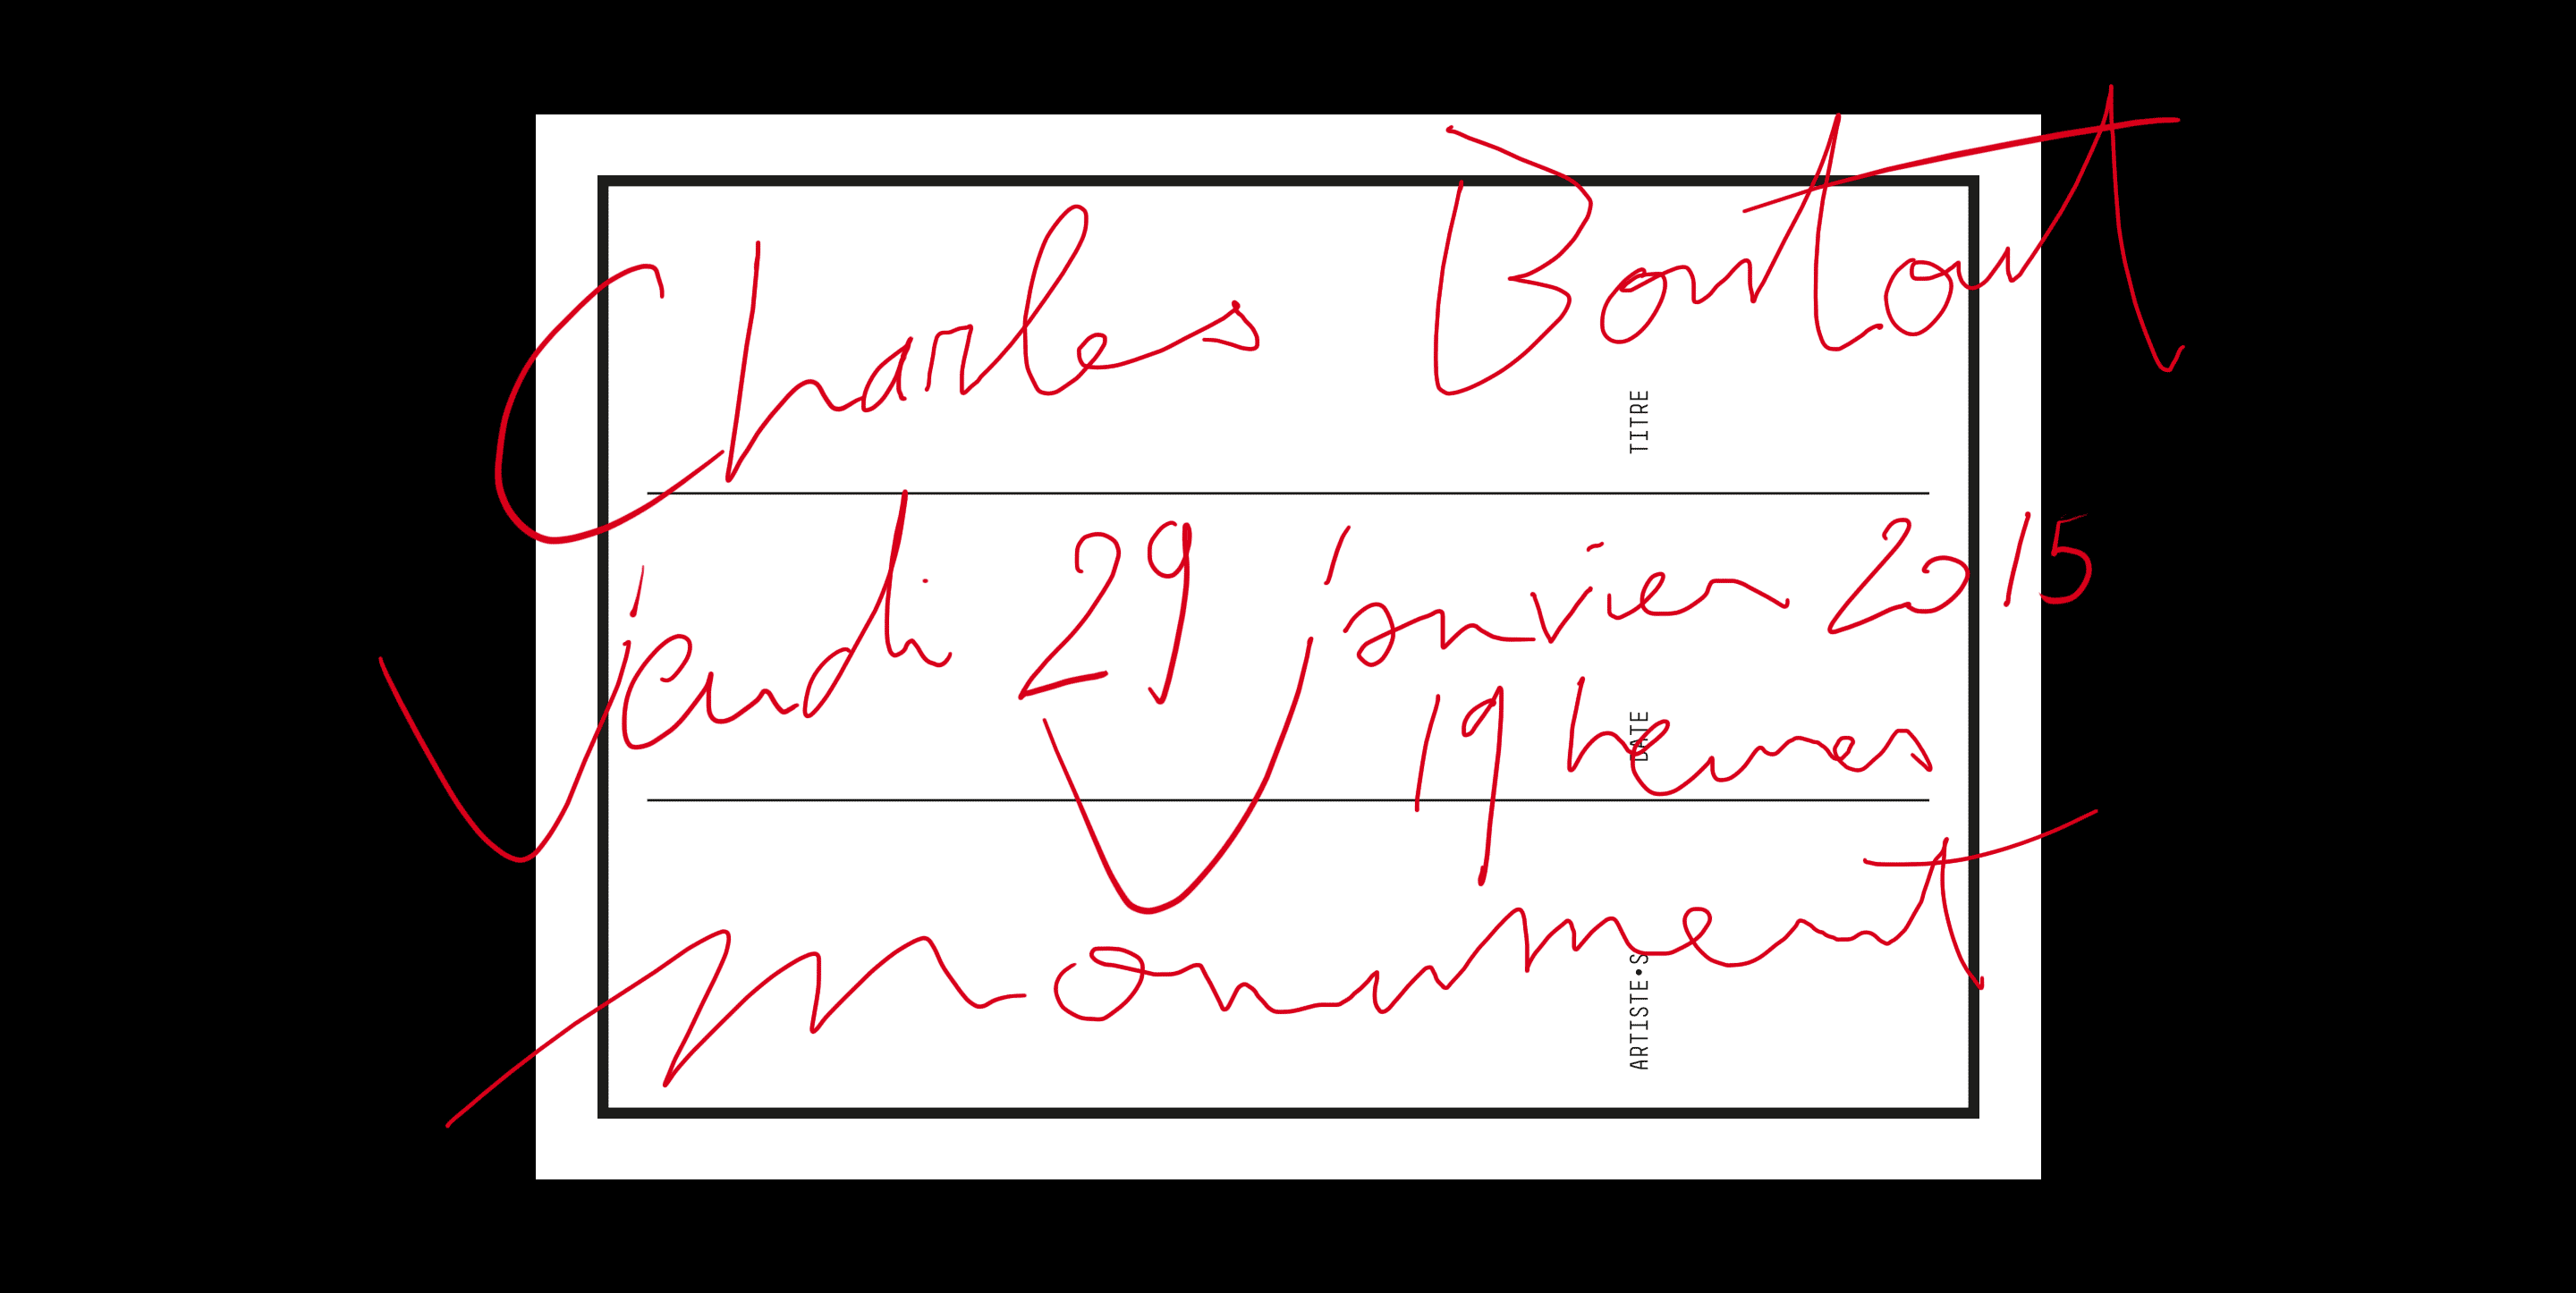 Charles Bontout
TITRE
jeudi 29 janvier 2015
19 heures
DATE
monument
ARTISTE•S